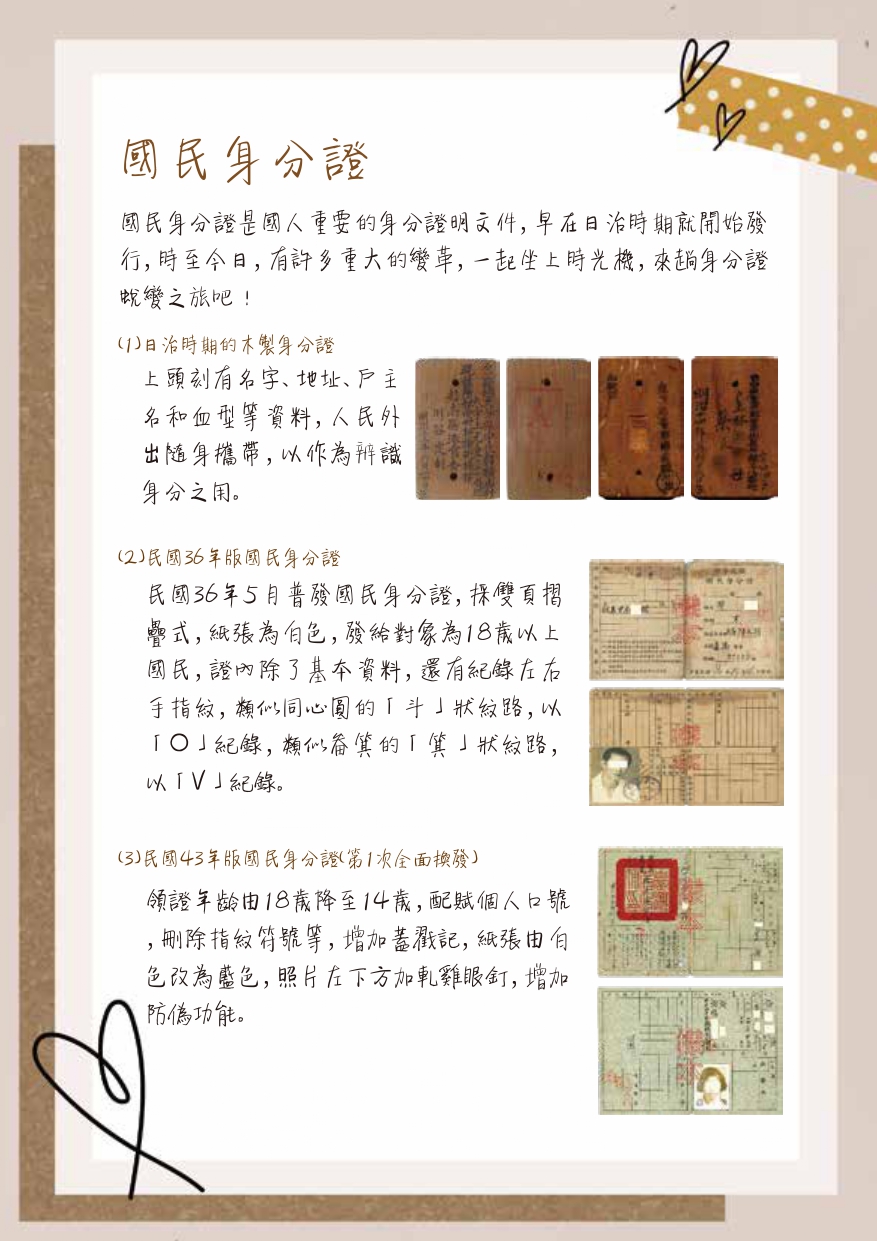 國民身分證
國民身分證是國人重要的身分證明文件,早在日治時期就開始發
行,時至今日,有許多重大的變革,一起坐上時光機,來趟身分證
蛻變之旅吧!
(1)日治時期的木製身分證
上頭刻有名字、地址、戶主
名和血型等資料,人民外
出隨身攜帶,以作為辨識
身分之用。
(2)民國36年版國民身分證
民國36年5月普發國民身分證,採雙頁摺
疊式,紙張為白色,發給對象為18歲以上
國民,證內除了基本資料,還有紀錄左右
手指紋,類似同心圓的「斗」狀紋路,以
「O」紀錄,類似畚箕的「箕」狀紋路,
以「V」紀錄。
(3)民國43年版國民身分證(第1次全面換發)
領證年齡由18歲降至14歲,配賦個人口號
,刪除指紋符號等,增加蓋戳記,紙張由白
色改為藍色,照片左下方加軋雞眼釘,增加
防偽功能。